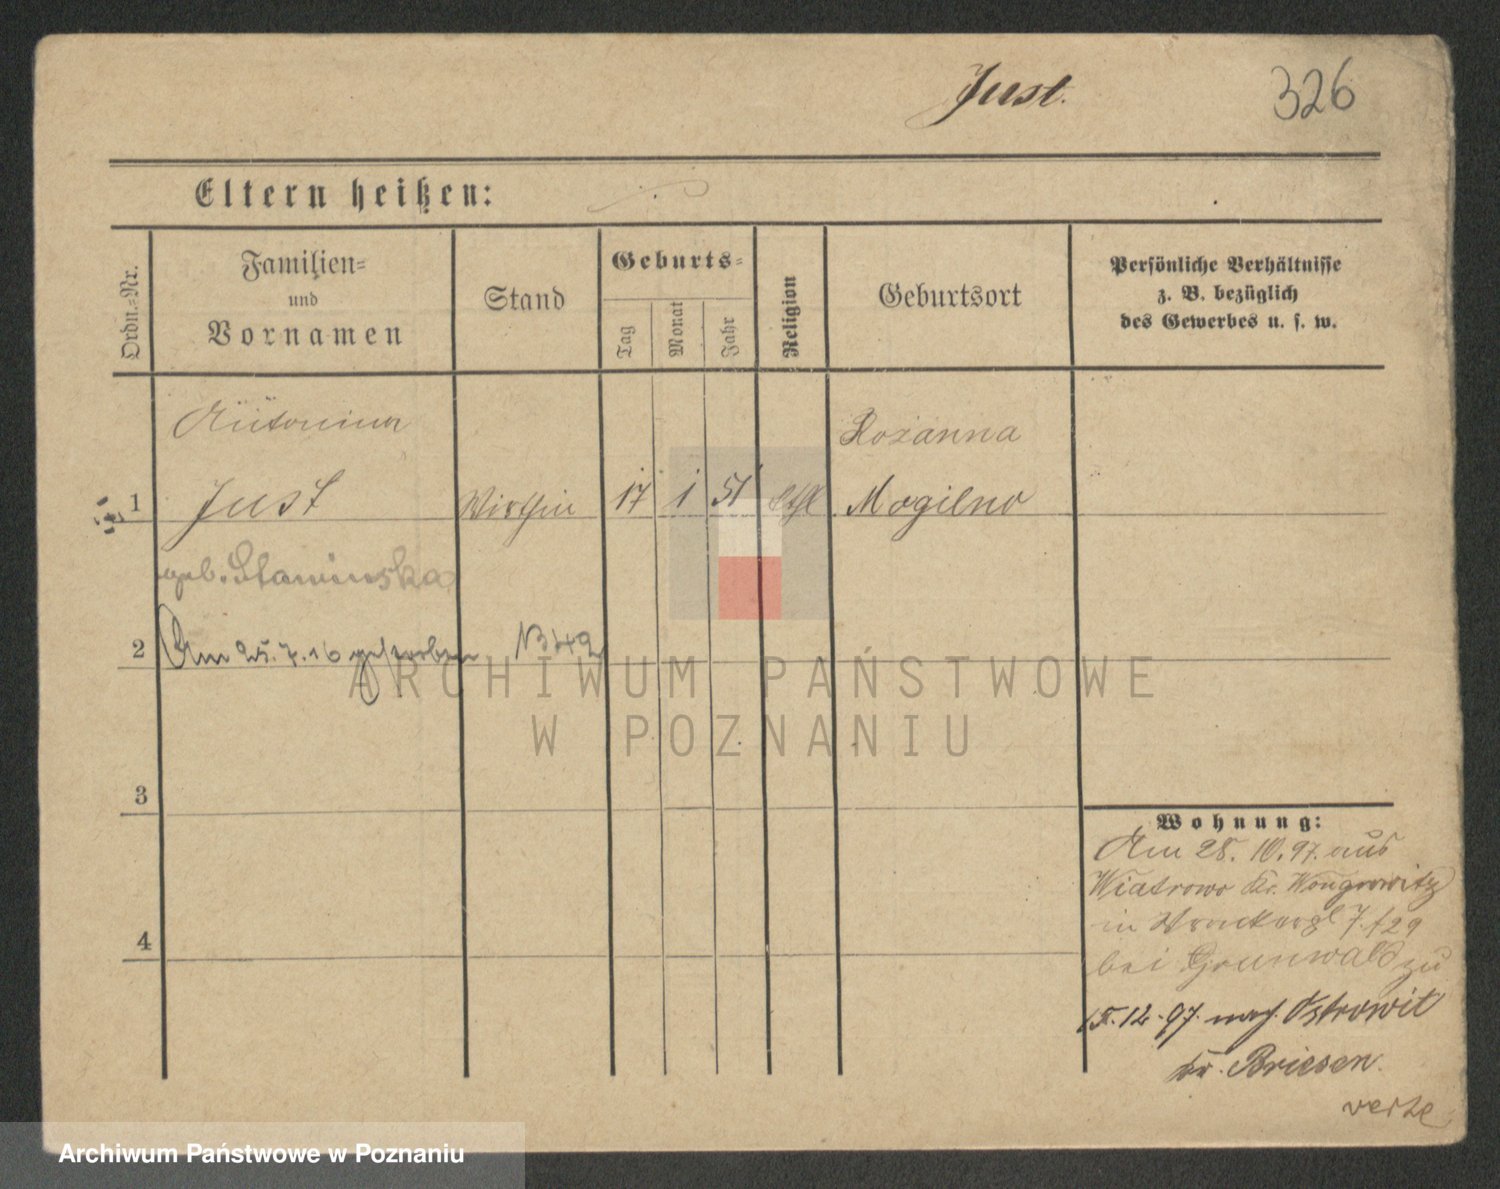 Just.
326
Eltern heißen:
Ordn.-Nr.
Familien-
und
Vornamen
Stand
Geburts-
Tag
Monat
Jahr
Religion
Geburtsort
Persönliche Verhältnisse
z. B. bezüglich
des Gewerbes u. s. w.
Antonina
Rozanna
1 Just Wirthin 17 1 51 kth Mogilno
geb. Slaminska
2 Am 25.7.16 gestorben
3
Wohnung:
Am 28. 10. 97. aus
Wiatrowo Kr. Wongrowitz
in
4
bei Grunwald zu
15.12.97. nach Ostrowit
Kr. Briesen.
verte
ARCHIWUM PAŃSTWOWE
W POZNANIU
Archiwum Państwowe w Poznaniu